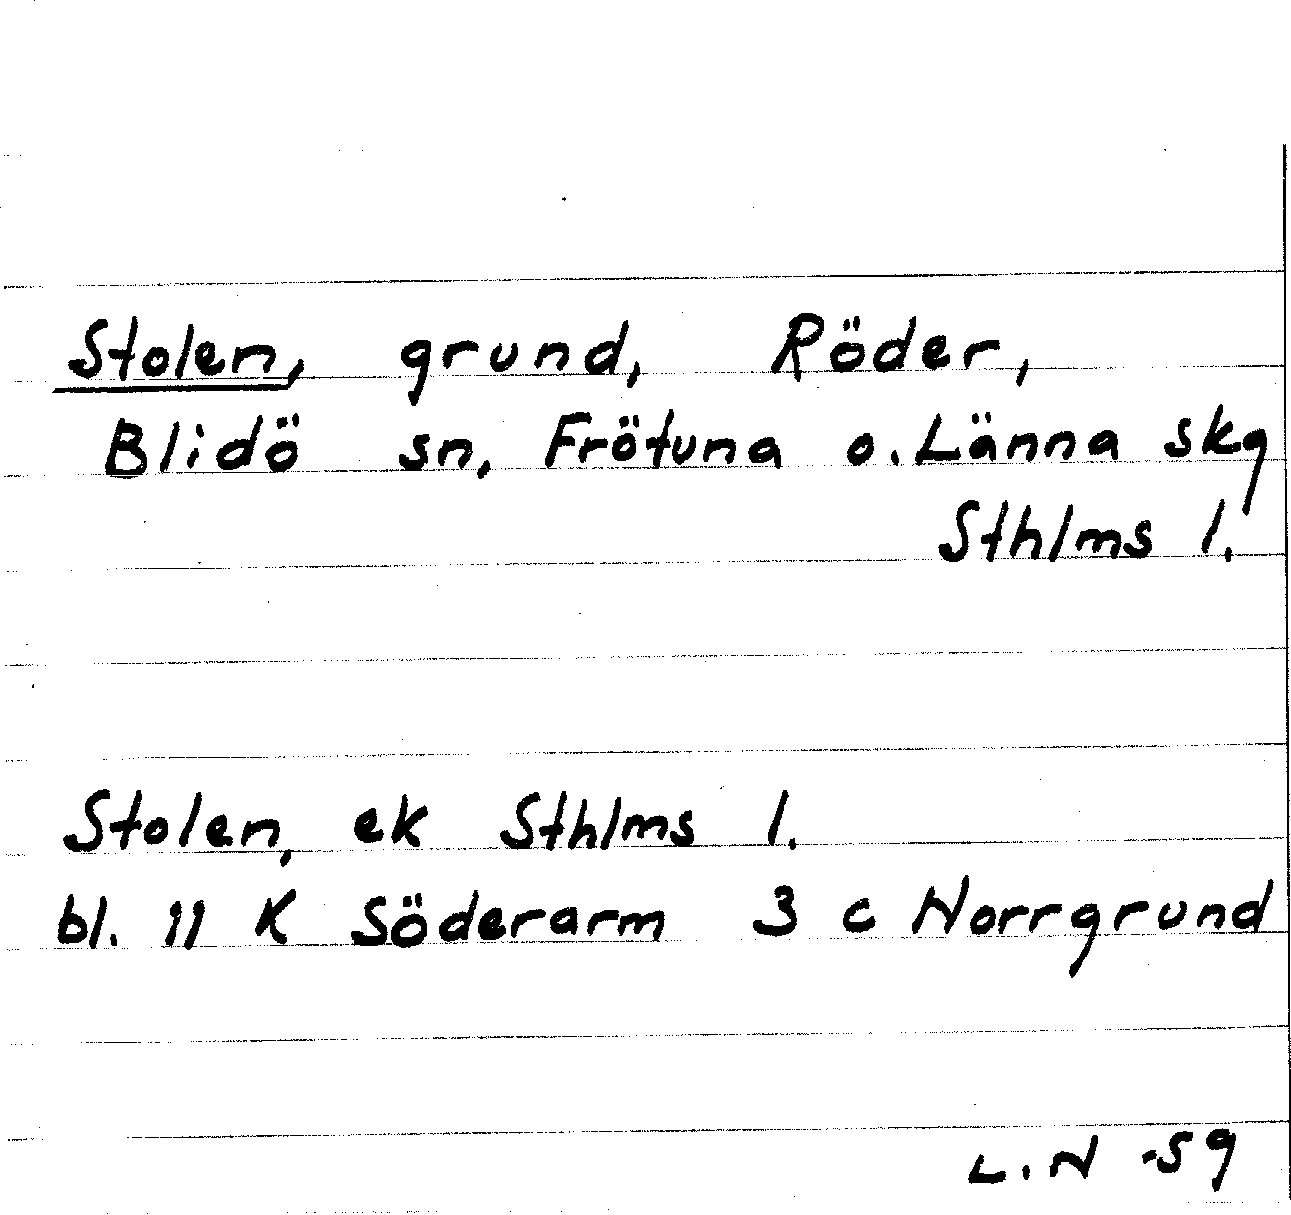 Stolen, grund, Röder,
Blidö sn, Frötuna o. Länna skg
Sthlms l.
Stolen, ek Sthlms l.
bl. 11 K Söderarm 3 c Norrgrund
L.N -59